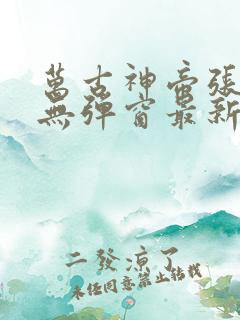 萬古神帝張
無彈窗最新
二發涼了
未经同意禁止转载